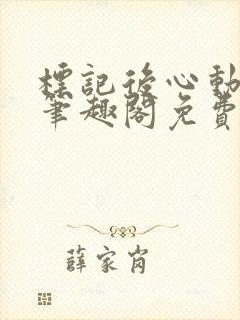 標記後心動
筆趣閣免費
薛家肖